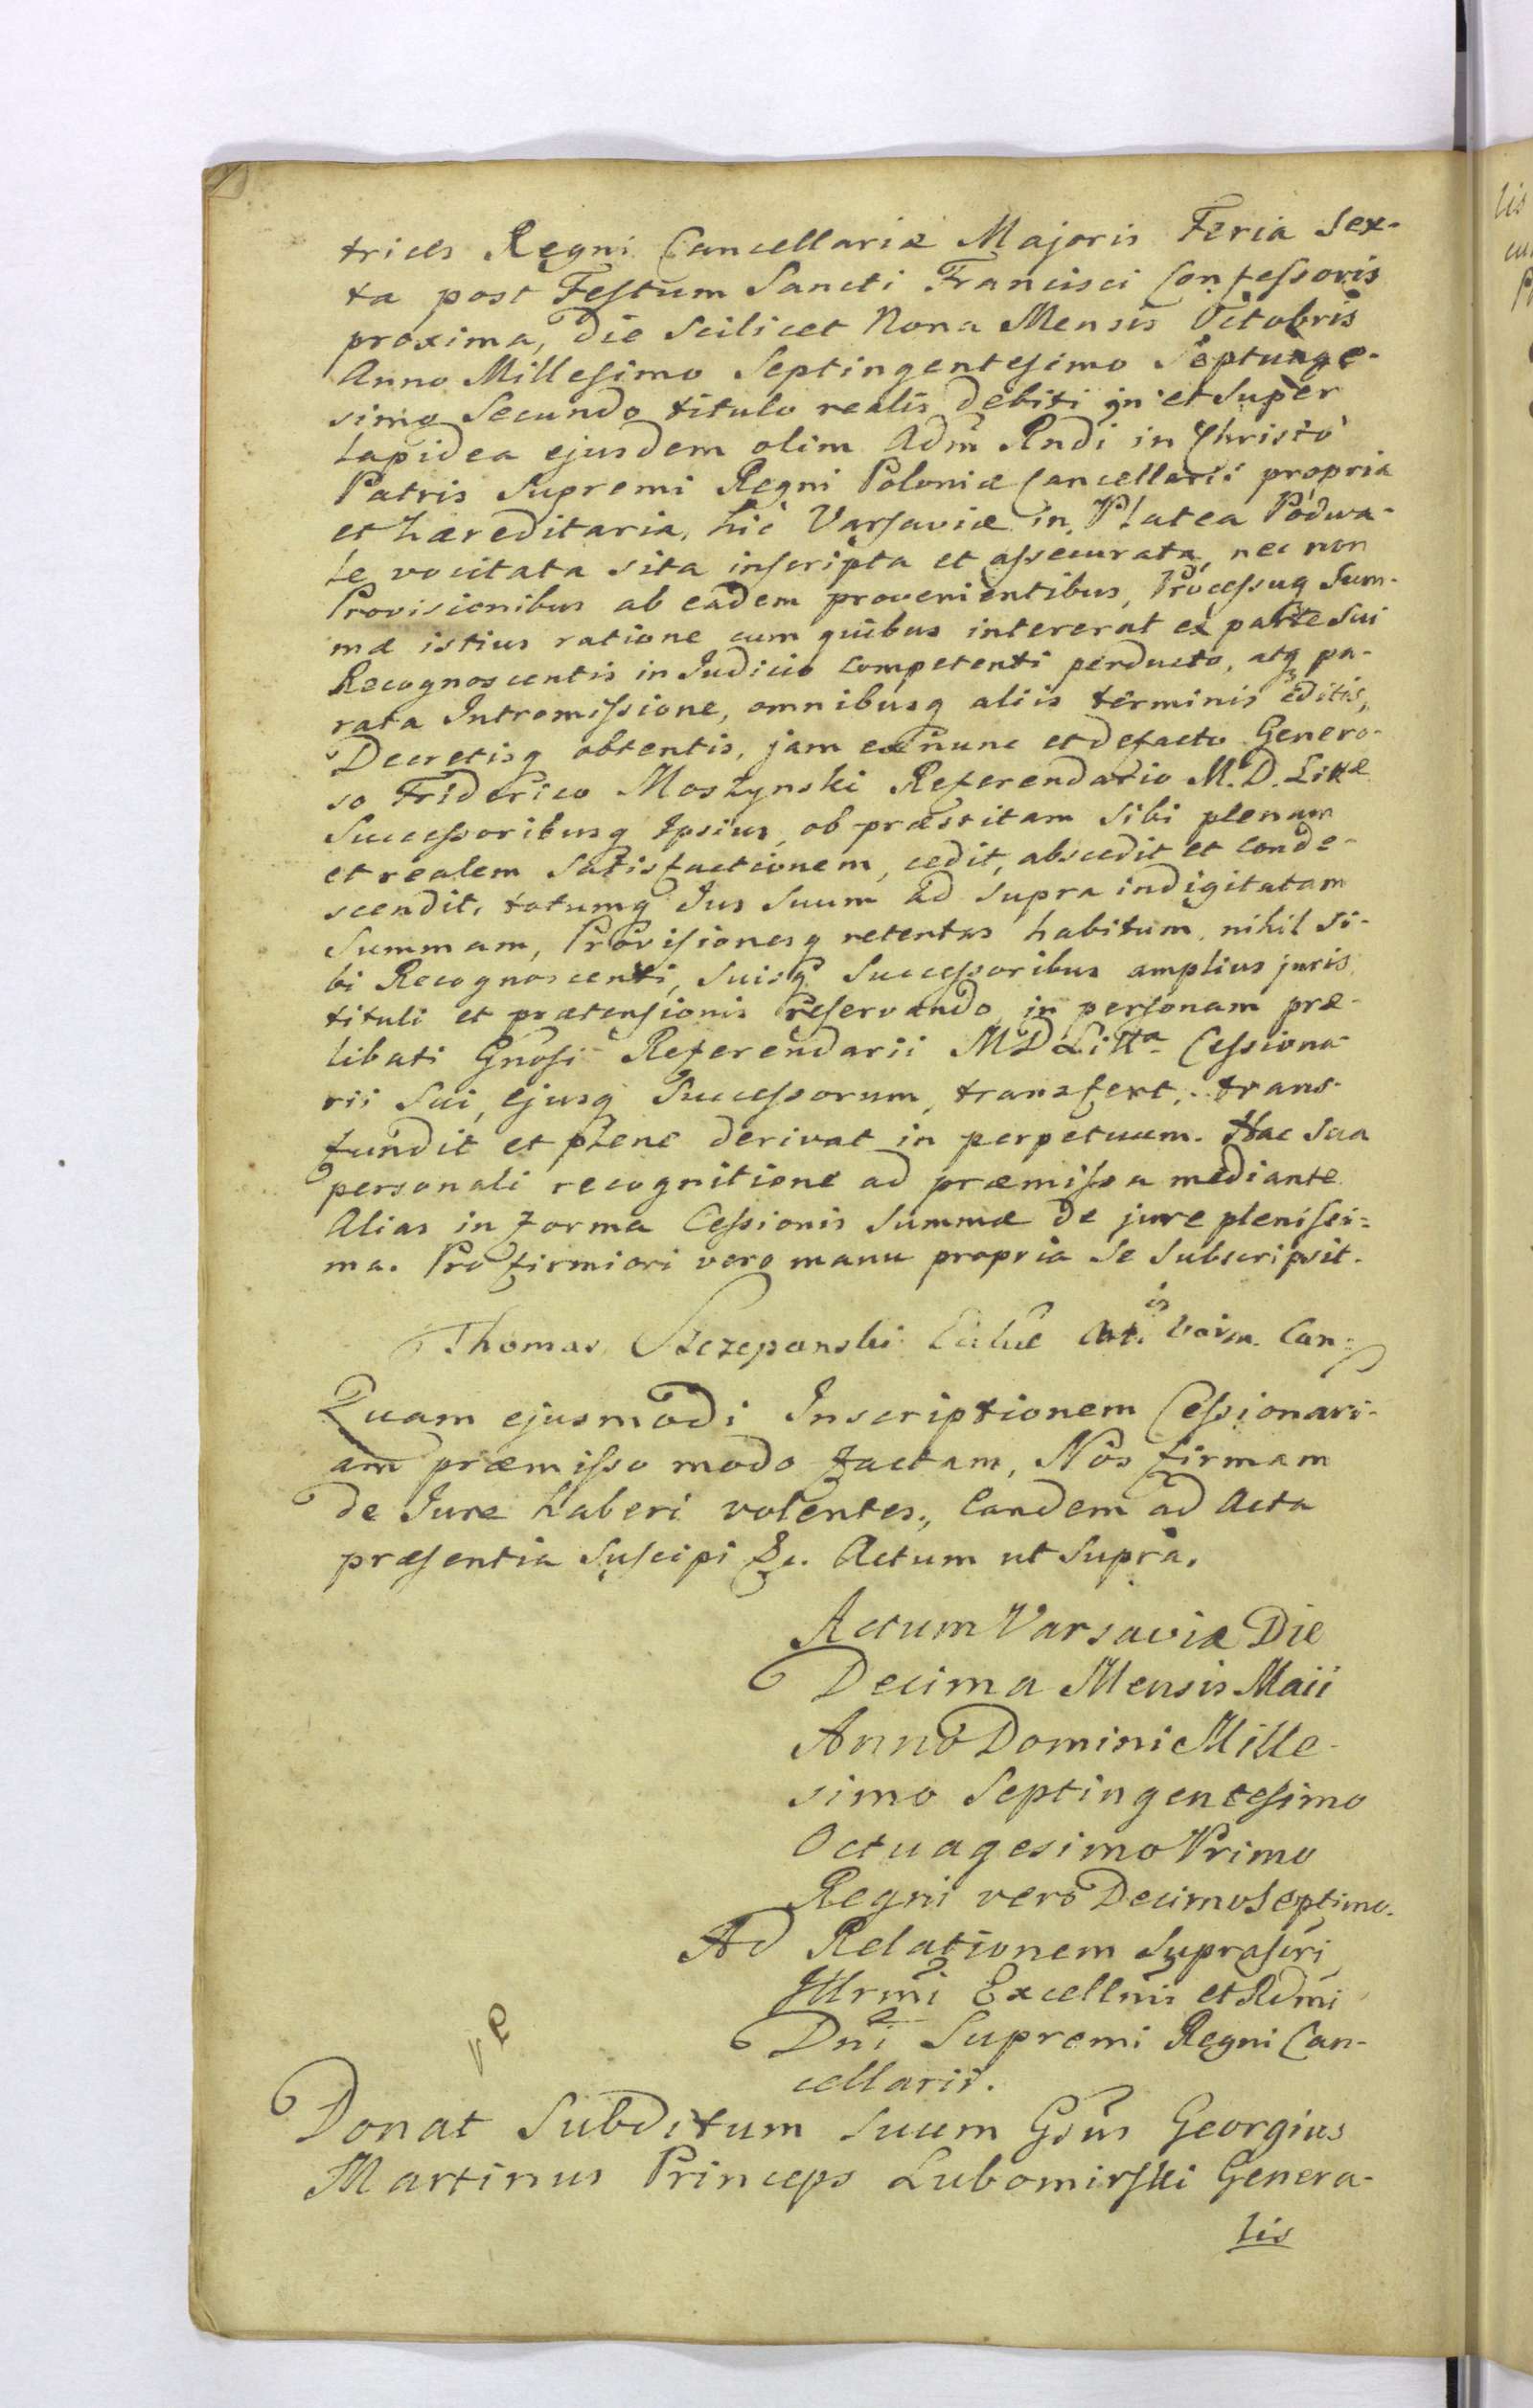 trices Regni Cancellariæ Majoris Feria Sex-
ta post Festum Sancti Francisci Confessoris
proxima, Die Scilicet Nona Mensis Octobris
Anno Millesimo Septingentesimo Septuage-
simo Secundo titulo realis debiti in et Super
Lapidea ejusdem olim Adm Rndi in Christo
Patris Supremi Regni Poloniæ Cancellarii propria
et hæreditaria, hic Varsaviæ in Platea Podwa-
le vocitata sita inscripta et assecurata, nec non
Provisionibus ab eadem provenientibus, Processuq Sum-
mæ istius ratione cum quibus intererat ex parte Sui
Recognoscentis in Judicio Competenti perducto, atq pa-
rata Intromissione, omnibusq aliis terminis editis,
Decretisq obtentis, jam ex nunc et defacto Genero-
so Friderico Moszynski Referendario M. D. Littæ
Successoribusq Ipsius, ob præstitam Sibi plenam
et realem Satisfactionem, cedit, abscedit et Conde-
scendit, totumq Jus Suum ad Supra indigitatam
Summam, Provisionesq retentas habitum, nihil Si-
bi Recognoscenti, Suisq Successoribus amplius juris
tituli et prætensionis reservando, in personam præ-
libati Gnosi Referendarii M D Litta Cessiona-
rii Sui, Ejusq Successorum, transfert, trans-
fundit et plene derivat in perpetuum. Hac Sua
personali recognitione ad præmissa mediante
Alias in forma Cessionis Summæ de jure plenissi=
ma. Pro firmiori vero manu propria Se Subscripsit.
Thomas Szczepanski Can:
Quam ejusmodi Inscriptionem Cessionari-
am præmisso modo factam, Nos firmam
de Jure haberi volentes, Eandem ad Acta
præsentia Suscipi &c. Actum ut Supra.
Actum Varsaviæ Die
Decima Mensis Maii
Anno Domini Mille-
simo Septingentesimo
Octuagesimo Primo
Regni vero Decimo Septimo.
Ad Relationem Suprascri
Illrmi Excellmi et Rdmi
Dni Supremi Regni Can-
cellarii.
Donat Subditum Suum Gsus Georgius
Martinus Princeps Lubomirski Genera-
lis